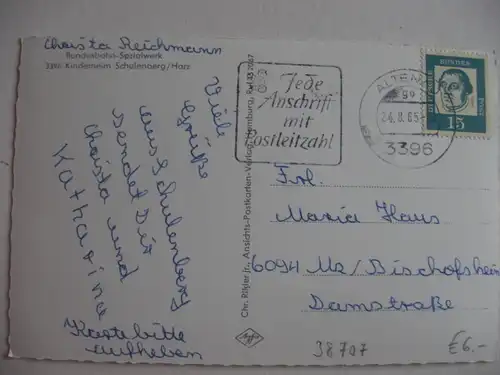 Christa Reichmann
Bundesbahn-Sozialwerk
Kinderheim Schulenberg/Harz
Viele
Grüße
aus Schulenberg
sendet Dir
Christa und
Katharina
Karte bitte
aufheben
Chr. Riljer jr., Ansichts-Postkarten-Verlag, Hamburg
Jede
Anschrift
mit
Postleitzahl
ALTENAU
24.8.65
3396
DEUTSCHE
BUNDESPOST
15
Frl.
Maria Haus
6094 Mz/Bischofsheim
Damstraße
Agfa
38707
€6.-